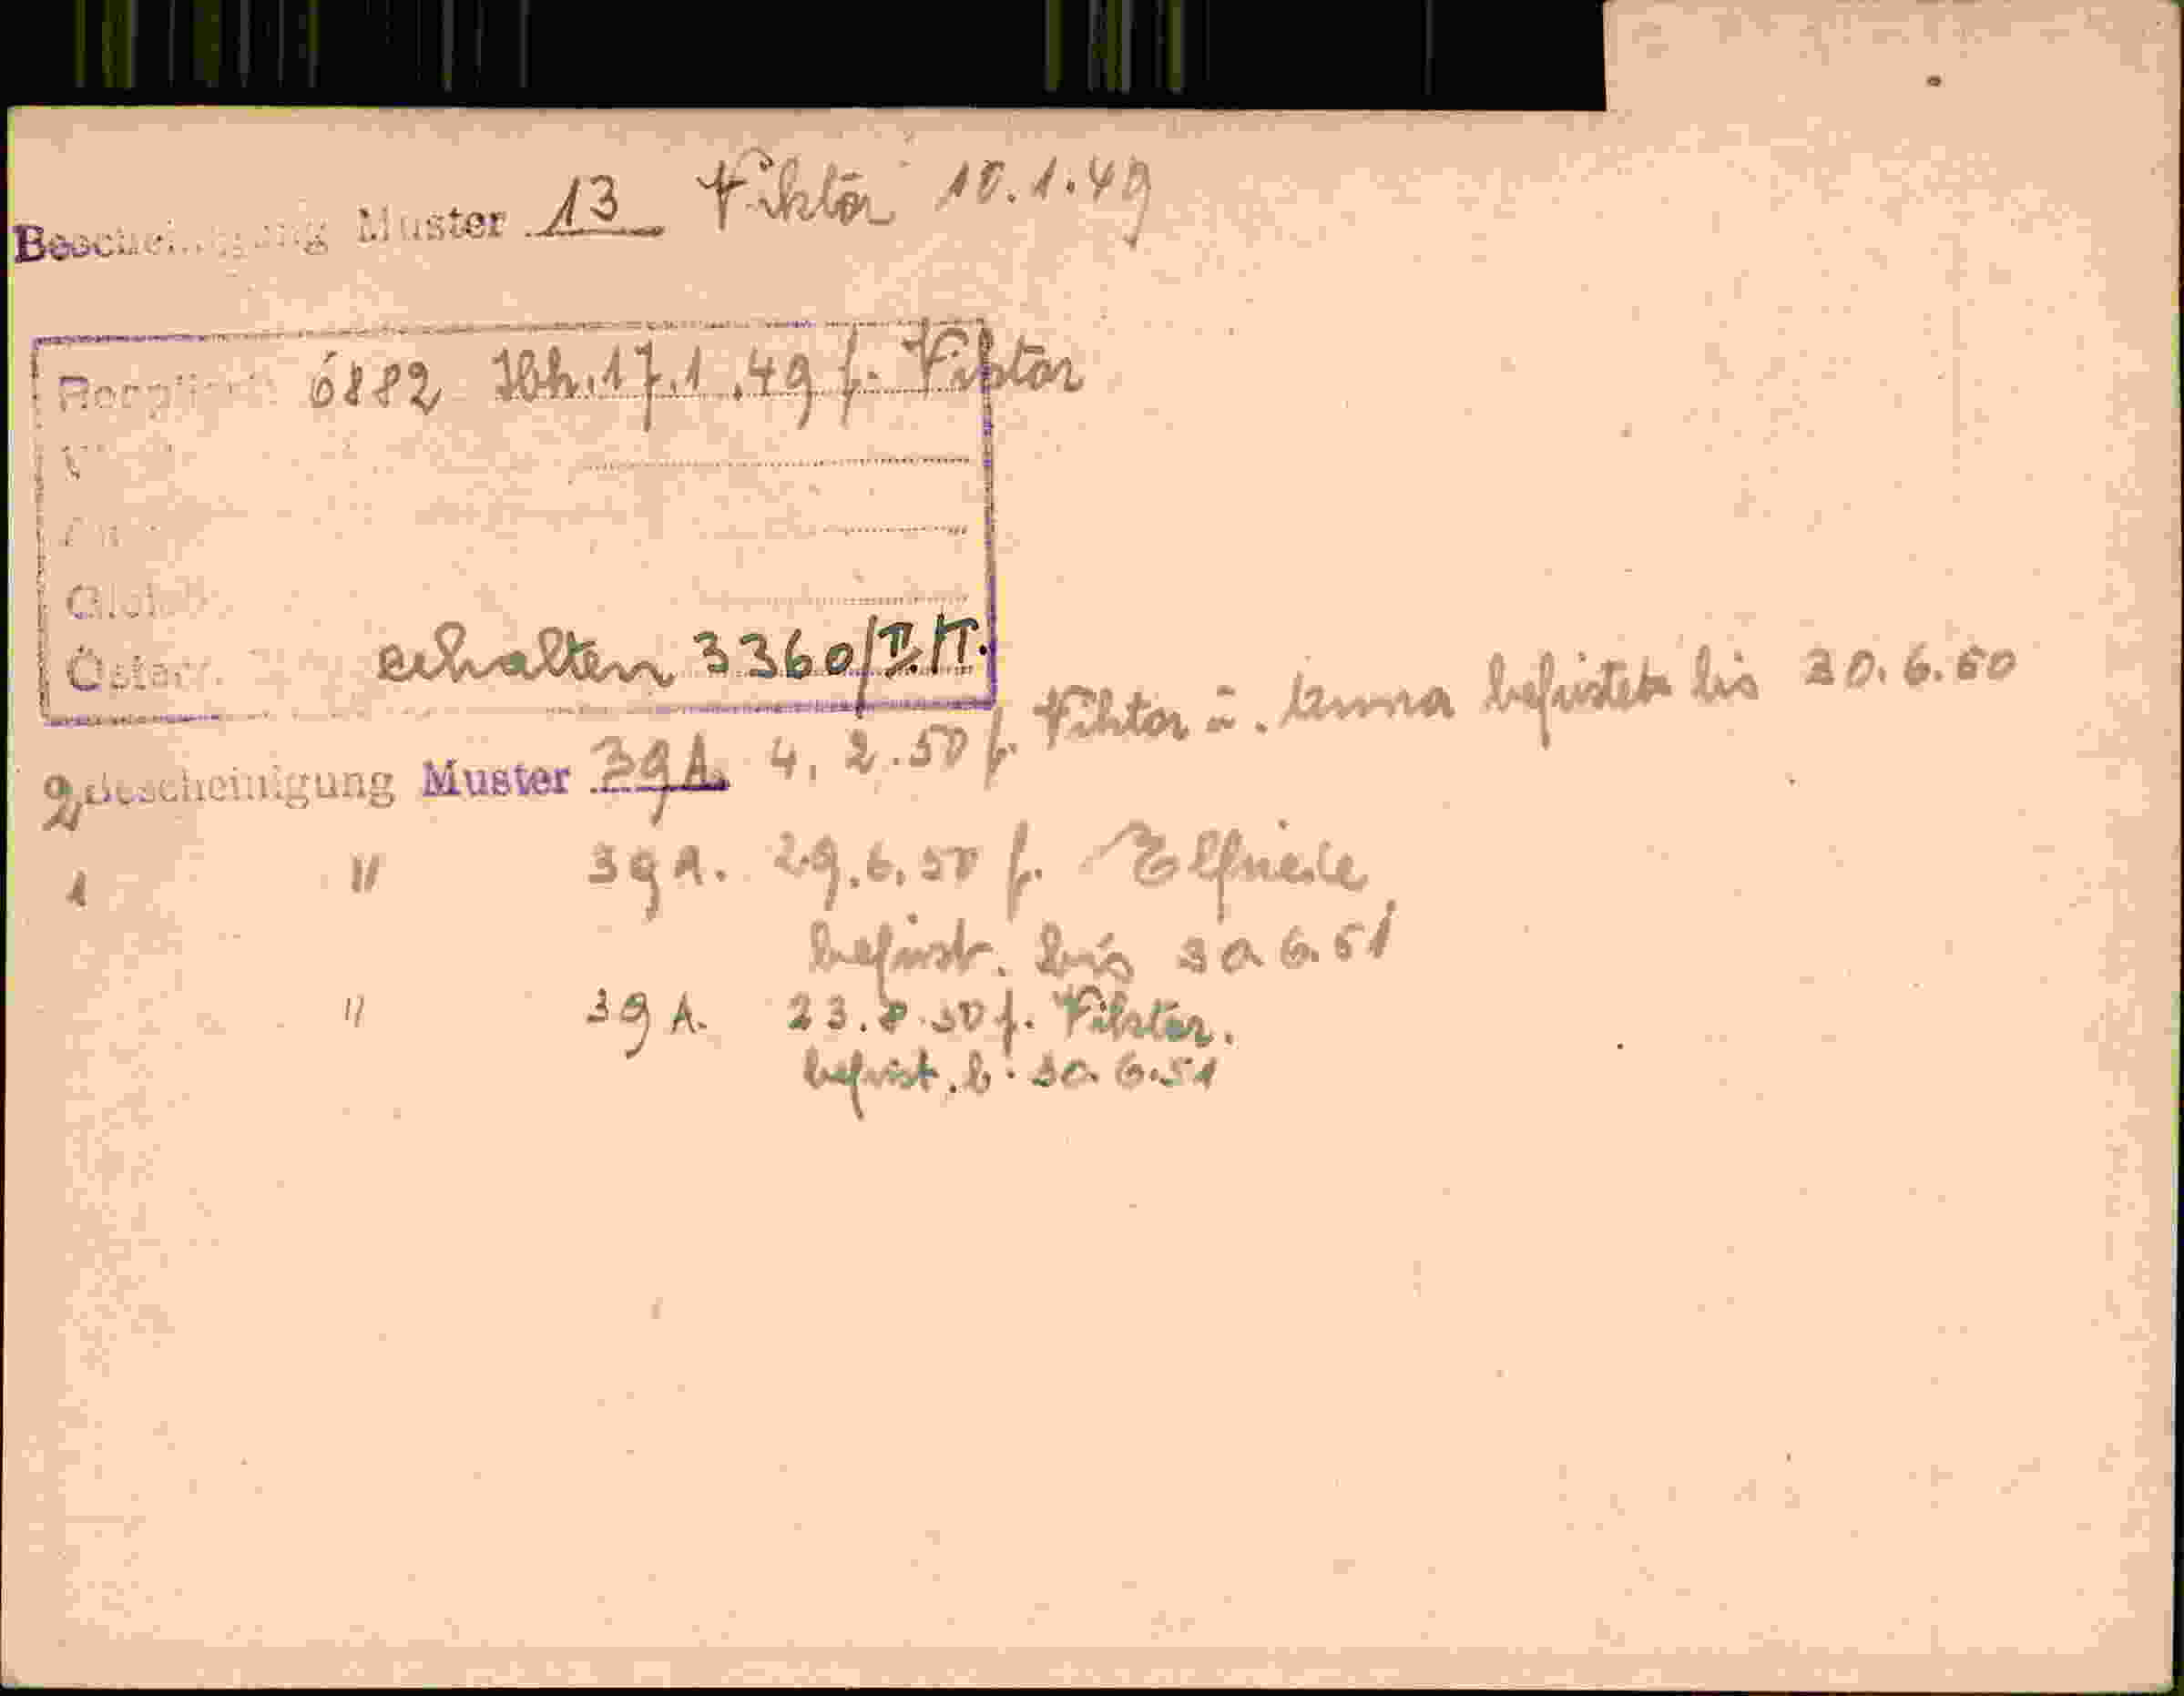 Bescheinigung Muster 13 Viktor 10.1.49
6882 17.1.49 f. Viktor
Österr. erhalten 3360/II/T.
2 Bescheinigung Muster 39A. 4.2.50 f. Viktor u. Anna befristet bis 30.6.50
1 " 39A. 29.6.50 f. Elfriede
befrist. bis 30.6.51
" 39A. 23.8.50 f. Viktor.
befrist. b. 30.6.51